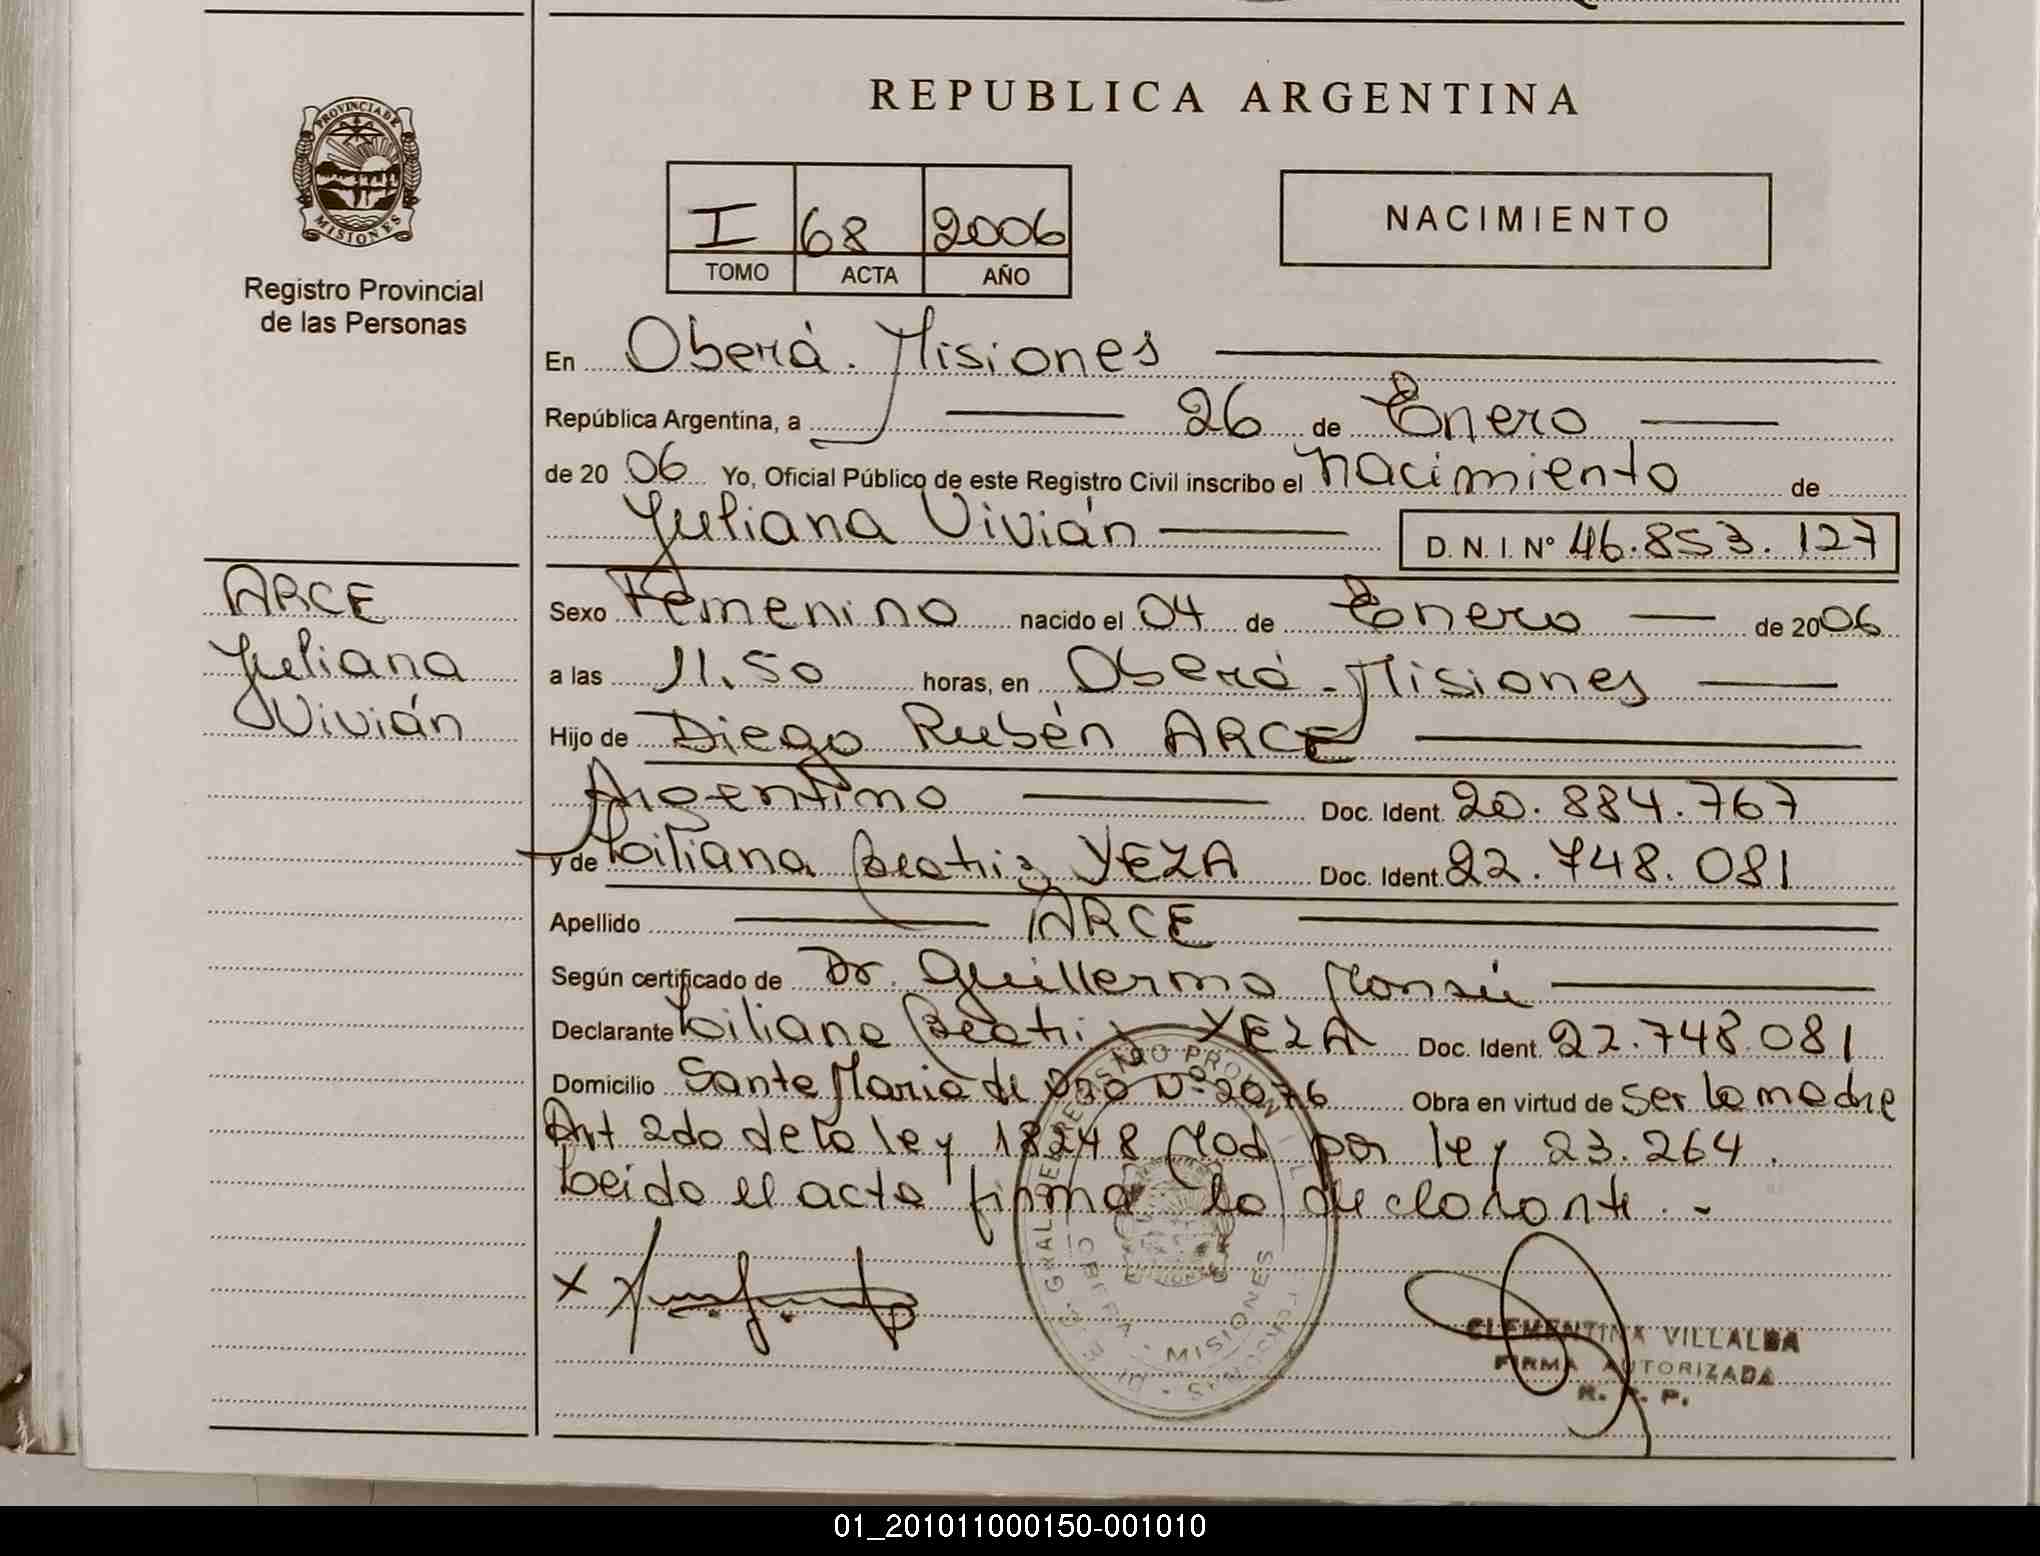 PROVINCIA DE
MISIONES
Registro Provincial
de las Personas
ARCE
Yuliana
Vivián
REPUBLICA ARGENTINA
I 68 2006
TOMO ACTA AÑO
NACIMIENTO
En Oberá. Misiones
República Argentina, a 26 de Enero
de 2006 Yo, Oficial Público de este Registro Civil inscribo el nacimiento de
Yuliana Vivián D. N. I. N° 46.853.127
Sexo Femenino nacido el 04 de Enero de 2006
a las 11.50 horas, en Oberá - Misiones
Hijo de Diego Rubén ARCE
Argentino Doc. Ident. 20.884.767
y de Liliana Beatriz YEZA Doc. Ident. 22.748.081
Apellido ARCE
Según certificado de Dr. Guillermo
Declarante Liliana Beatriz YEZA Doc. Ident. 22.748.081
Domicilio Santa Maria de Oro N° 2076 Obra en virtud de ser la madre
Art 2do de la ley 18248 Mod por ley 23.264.
Leida el acta firma la declarante. -
X
MISIONES
CLEMENTINA VILLALBA
FIRMA AUTORIZADA
R. P. P.
01_201011000150-001010